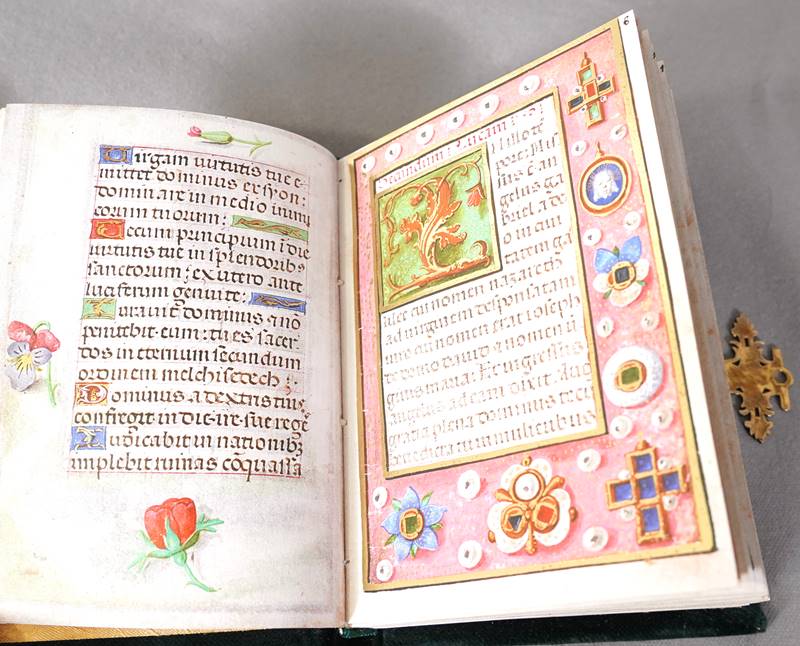 Virgam virtutis tue e-
mittet dominus ex syon:
dominare in medio inimi
corum tuorum:
Tecum principium i die
virtutis tue in splendoribꝰ
sanctorum: ex utero ante
luciferum genui te:
Iuravit dominus ⁊ no
penitebit eum: tu es sacer
dos in eternum secundum
ordinem melchisedech:
Dominus a dextris tuis
confregit in die ire sue rege
Iudicabit in nationibꝫ
implebit ruinas coquassa
6
Secundum Lucam
In illo te
pore: Mis
sus est an
gelus ga
briel a de
o in civi
tatem ga
lilee cui nomen nazareth
ad virginem desponsatam
viro cui nomen erat ioseph
de domo david ⁊ nomen v
ginis maria. Et ingressus
angelus ad eam dixit. Aue
gratia plena dominus tecu
benedicta tu in mulieribus